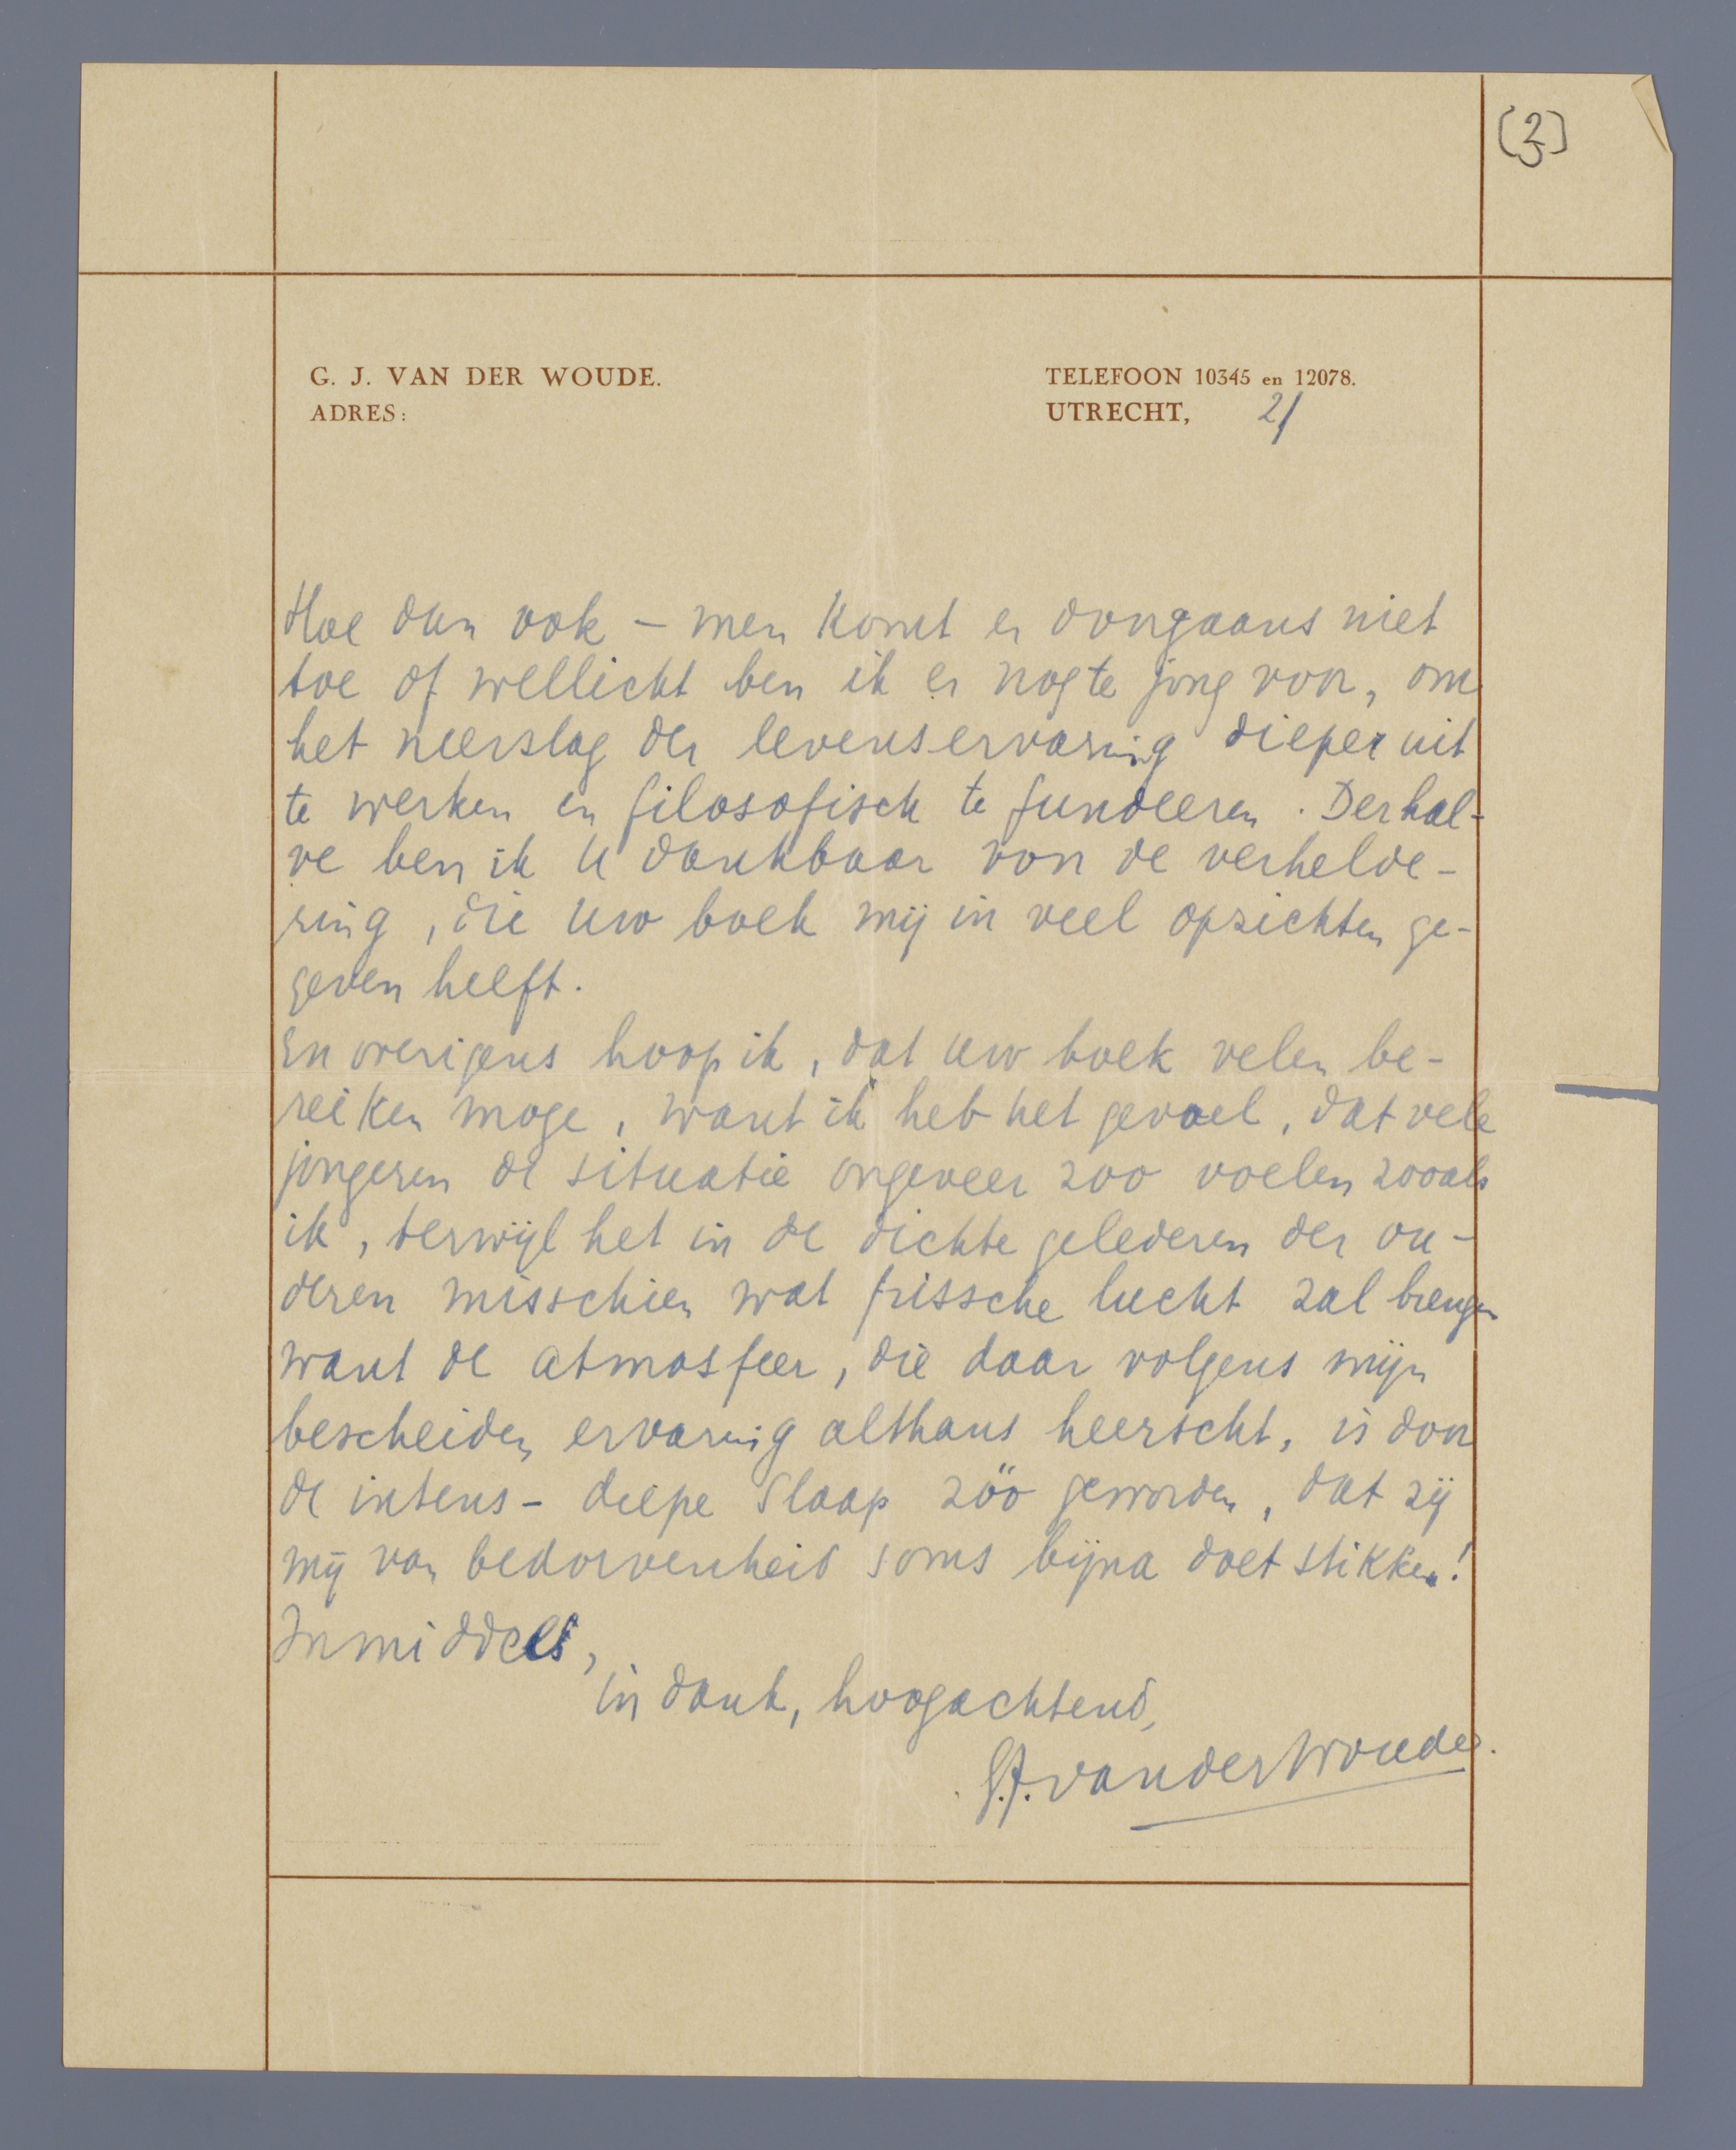 (3)
G. J. VAN DER WOUDE.
ADRES:
TELEFOON 10345 en 12078.
UTRECHT, 2/
Hoe dan ook – men komt er doorgaans niet
toe of wellicht ben ik er nog te jong voor, om
het neerslag der levenservaring dieper uit
te werken en filosofisch te fundeeren. Derhal-
ve ben ik U dankbaar voor de verhelde-
ring, die Uw boek mij in veel opzichten ge-
geven heeft.
En overigens hoop ik, dat Uw boek velen be-
reiken moge, want ik heb het gevoel, dat vele
jongeren de situatie ongeveer zoo voelen zooals
ik, terwijl het in de dichte gelederen der ou-
deren misschien wat frissche lucht zal brengen
want de atmosfeer, die daar volgens mijn
bescheiden ervaring althans heerscht, is door
de intens-diepe slaap zóó geworden, dat zij
mij van bedorvenheid soms bijna doet stikken!
Inmiddels,
in dank, hoogachtend,
G.J. van der Woude.